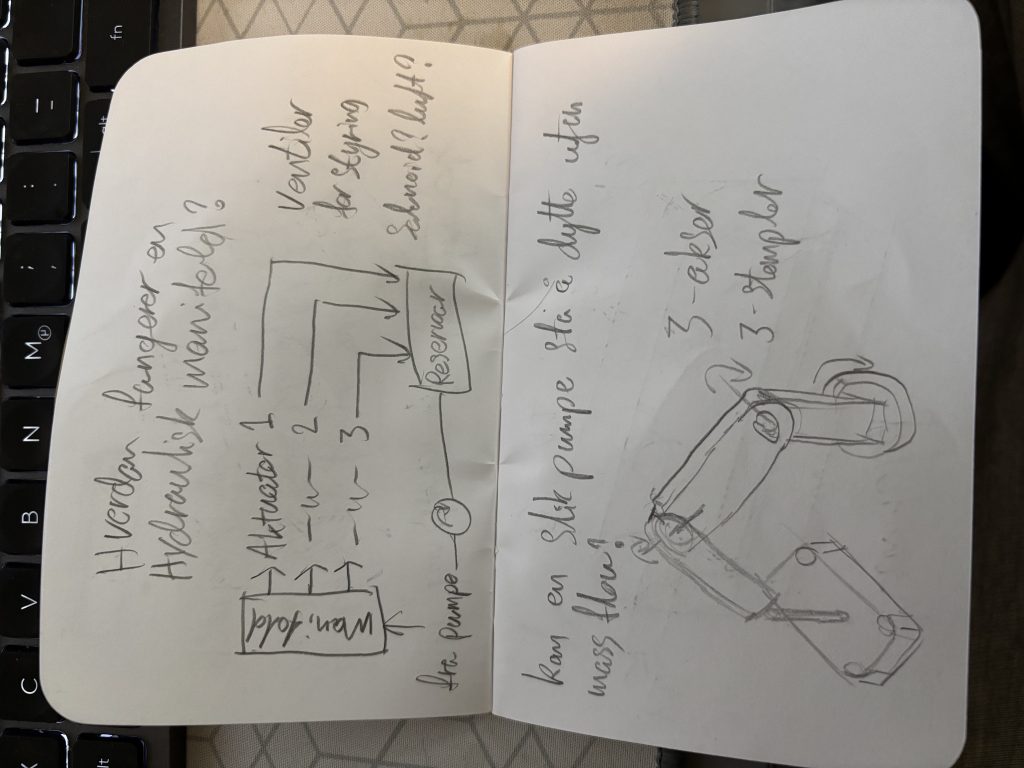 Hvordan fungerer en
Hydraulisk manifold?
manifold
Aktuator 1
—u— 2
—u— 3
Ventiler
for styring
Solenoid? luft?
fra pumpe
Reservoar
kan en slik pumpe stå å dytte uten
mass flow?
3-akser
3-stempler
fn
=
:
;
M
N
B
V
C